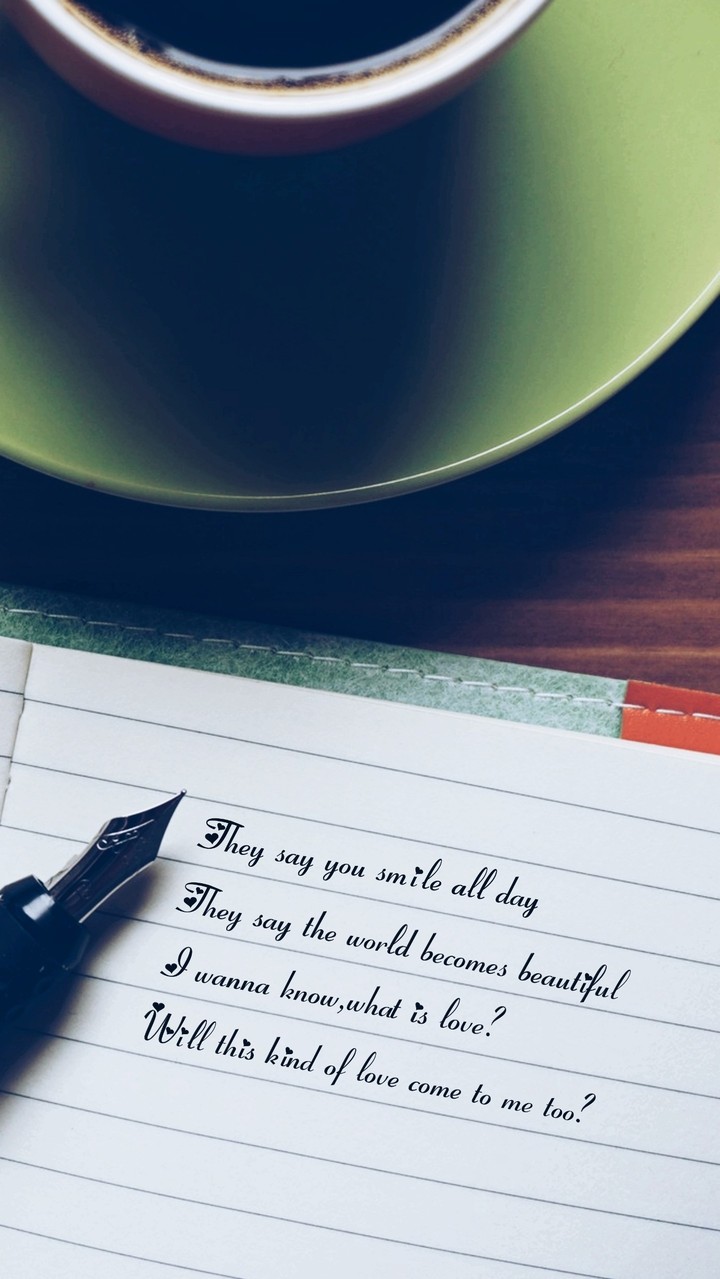 They say you smile all day
They say the world becomes beautiful
I wanna know,what is love?
Will this kind of love come to me too?